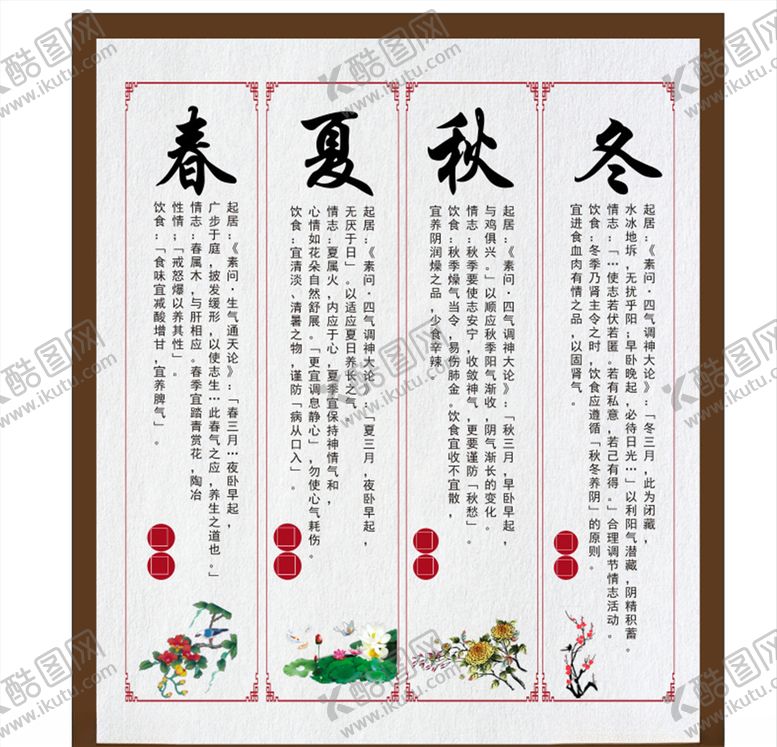 春
起居：《素问·生气通天论》：「春三月…夜卧早起，
广步于庭，披发缓形，以使志生…此春气之应，养生之道也。」
情志：春属木，与肝相应。春季宜踏青赏花，陶冶
性情；「戒怒爆以养其性」。
饮食：「食味宜减酸增甘，宜养脾气」。
夏
起居：《素问·四气调神大论》：「夏三月，夜卧早起，
无厌于日」。以适应夏日养长之气。
情志：夏属火，内应于心，夏季宜保持神情气和，
心情如花朵自然舒展。「更宜调息静心」，勿使心气耗伤。
饮食：宜清淡、清暑之物，谨防「病从口入」。
秋
起居：《素问·四气调神大论》：「秋三月，早卧早起，
与鸡俱兴。」以顺应秋季阳气渐收，阴气渐长的变化。
情志：秋季要使志安宁，收敛神气，更要谨防「秋愁」。
饮食：秋季燥气当令，易伤肺金。饮食宜收不宜散，
宜养阴润燥之品，少食辛辣。
冬
起居：《素问·四气调神大论》：「冬三月，此为闭藏，
水冰地坼，无扰乎阳；早卧晚起，必待日光…」以利阳气潜藏，阴精积蓄。
情志：「…使志若伏若匿。若有私意，若己有得。」合理调节情志活动。
饮食：冬季乃肾主令之时，饮食应遵循「秋冬养阴」的原则。
宜进食血肉有情之品，以固肾气。
酷图网
www.ikutu.com